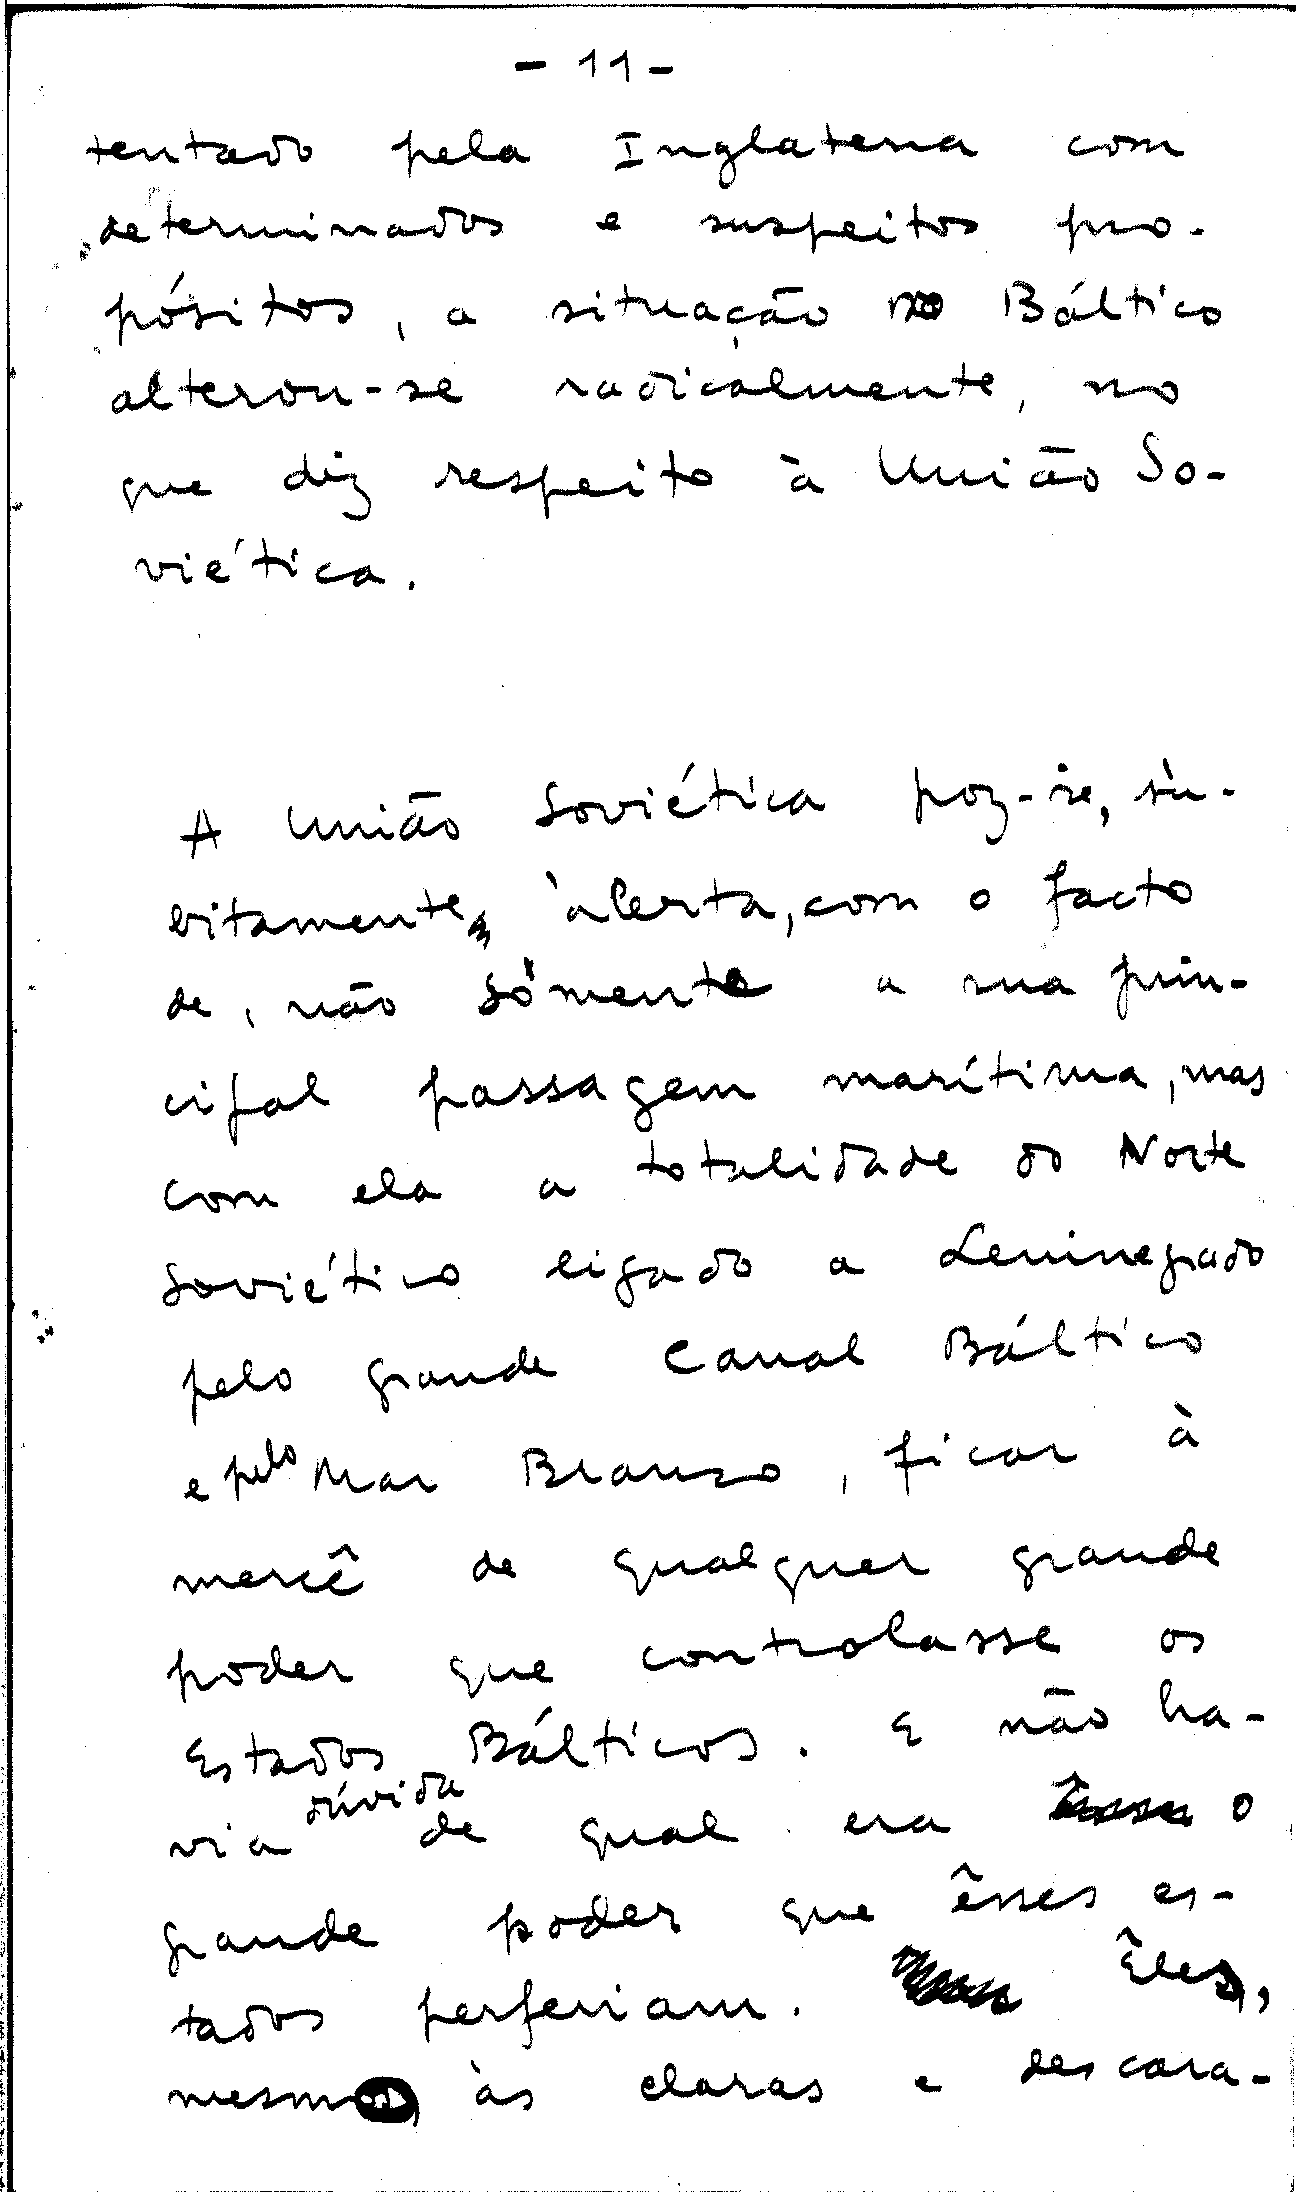 - 11 -
tentado pela Inglaterra com
determinados e suspeitos pro-
pósitos, a situação no Báltico
alterou-se radicalmente, no
que diz respeito à União So-
viética.
A União Soviética poz-se, sù-
bitamente, àlerta, com o facto
de, não sòmente a sua prin-
cipal passagem marítima, mas
com ela a totalidade do Norte
Soviético ligado a Leninegrado
pelo grande Canal Báltico
e pelo Mar Branco, ficar à
mercê de qualquer grande
poder que controlasse os
Estados Bálticos. E não ha-
dúvida
via de qual era o
grande poder que êsses es-
tados perferiam. Êles,
mesmos, às claras e descara-